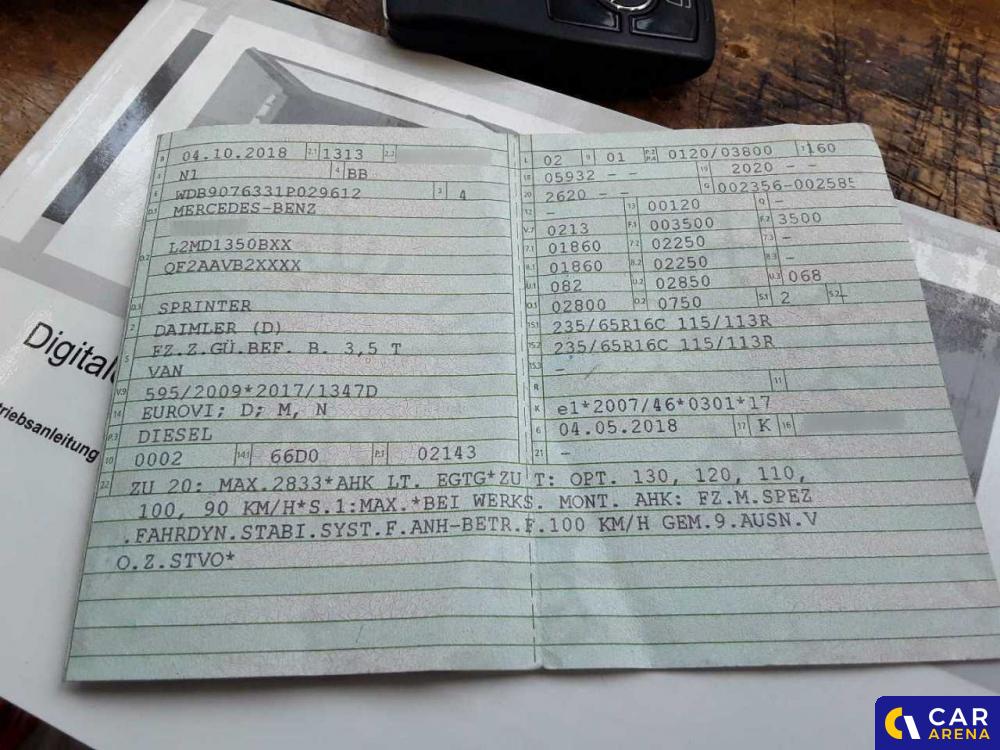 B 04.10.2018 2.1 1313 2.2
J N1 4 BB
E WDB9076331P029612 3 4
D.1 MERCEDES-BENZ
D.2 L2MD1350BXX
QF2AAVB2XXXX
D.3 SPRINTER
2 DAIMLER (D)
5 FZ.Z.GÜ.BEF. B. 3,5 T
VAN
V.9 595/2009*2017/1347D
14 EUROVI; D; M, N
P.3 DIESEL
10 0002 14.1 66D0 P.1 02143
L 02 9 01 P.2 P.4 0120/03800 T 160
18 05932 - - 19 2020 - -
20 2620 - - G 002356-002585
12 - 13 00120 Q -
V.7 0213 F.1 003500 F.2 3500
7.1 01860 7.2 02250 7.3 -
8.1 01860 8.2 02250 8.3 -
U.1 082 U.2 02850 U.3 068
O.1 02800 O.2 0750 S.1 2 S.2 -
15.1 235/65R16C 115/113R
15.2 235/65R16C 115/113R
15.3 -
R 11
K e1*2007/46*0301*17
6 04.05.2018 17 K 16
21 -
22 ZU 20: MAX.2833*AHK LT. EGTG*ZU T: OPT. 130, 120, 110,
100, 90 KM/H*S.1:MAX.*BEI WERKS. MONT. AHK: FZ.M.SPEZ
.FAHRDYN.STABI.SYST.F.ANH-BETR.F.100 KM/H GEM.9.AUSN.V
O.Z.STVO*
riebsanleitung
CAR
ARENA